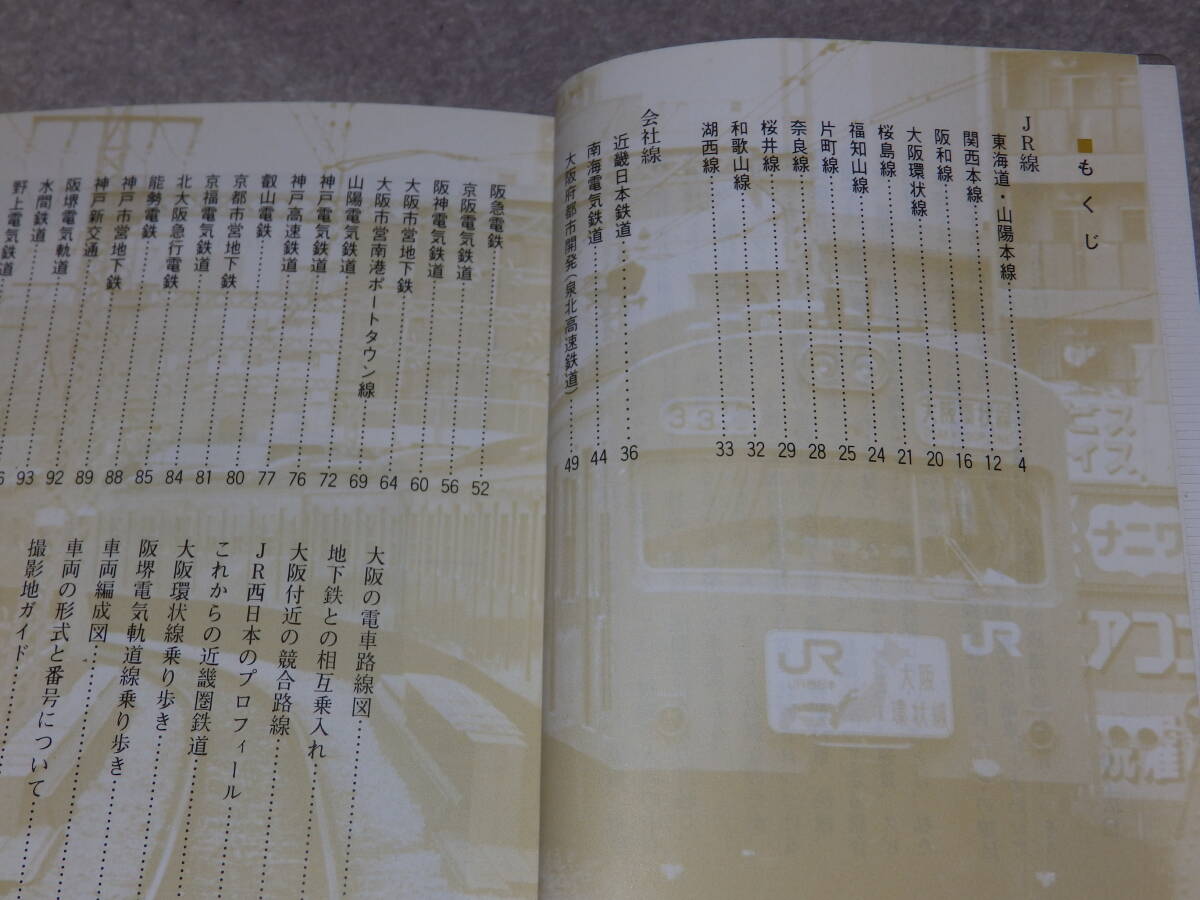 ■もくじ
JR線
東海道・山陽本線……4
関西本線……12
阪和線……16
大阪環状線……20
桜島線……21
福知山線……24
片町線……25
奈良線……28
桜井線……29
和歌山線……32
湖西線……33
会社線
近畿日本鉄道……36
南海電気鉄道……44
大阪府都市開発(泉北高速鉄道)……49
阪急電鉄……52
京阪電気鉄道……56
阪神電気鉄道……60
大阪市営地下鉄……64
大阪市営南港ポートタウン線
山陽電気鉄道……69
神戸電気鉄道……72
神戸高速鉄道……76
叡山電鉄……77
京都市営地下鉄……80
京福電気鉄道……81
北大阪急行電鉄……84
能勢電鉄……85
神戸市営地下鉄……88
神戸新交通……89
阪堺電気軌道……92
水間鉄道……93
野上電気鉄道……6
大阪の電車路線図……
地下鉄との相互乗入れ……
大阪付近の競合路線……
JR西日本のプロフィール……
これからの近畿圏鉄道……
大阪環状線乗り歩き……
阪堺電気軌道線乗り歩き……
車両編成図……
車両の形式と番号について……
撮影地ガイド……
33
大阪環状線
JR
JR
大阪環状線
ナニワ
アコ